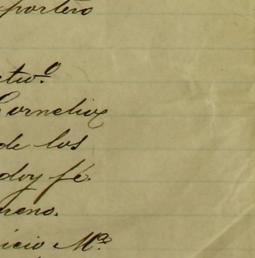 portero
ctivº
Cornelio
de los
doy fé.
reno.
icio Mª